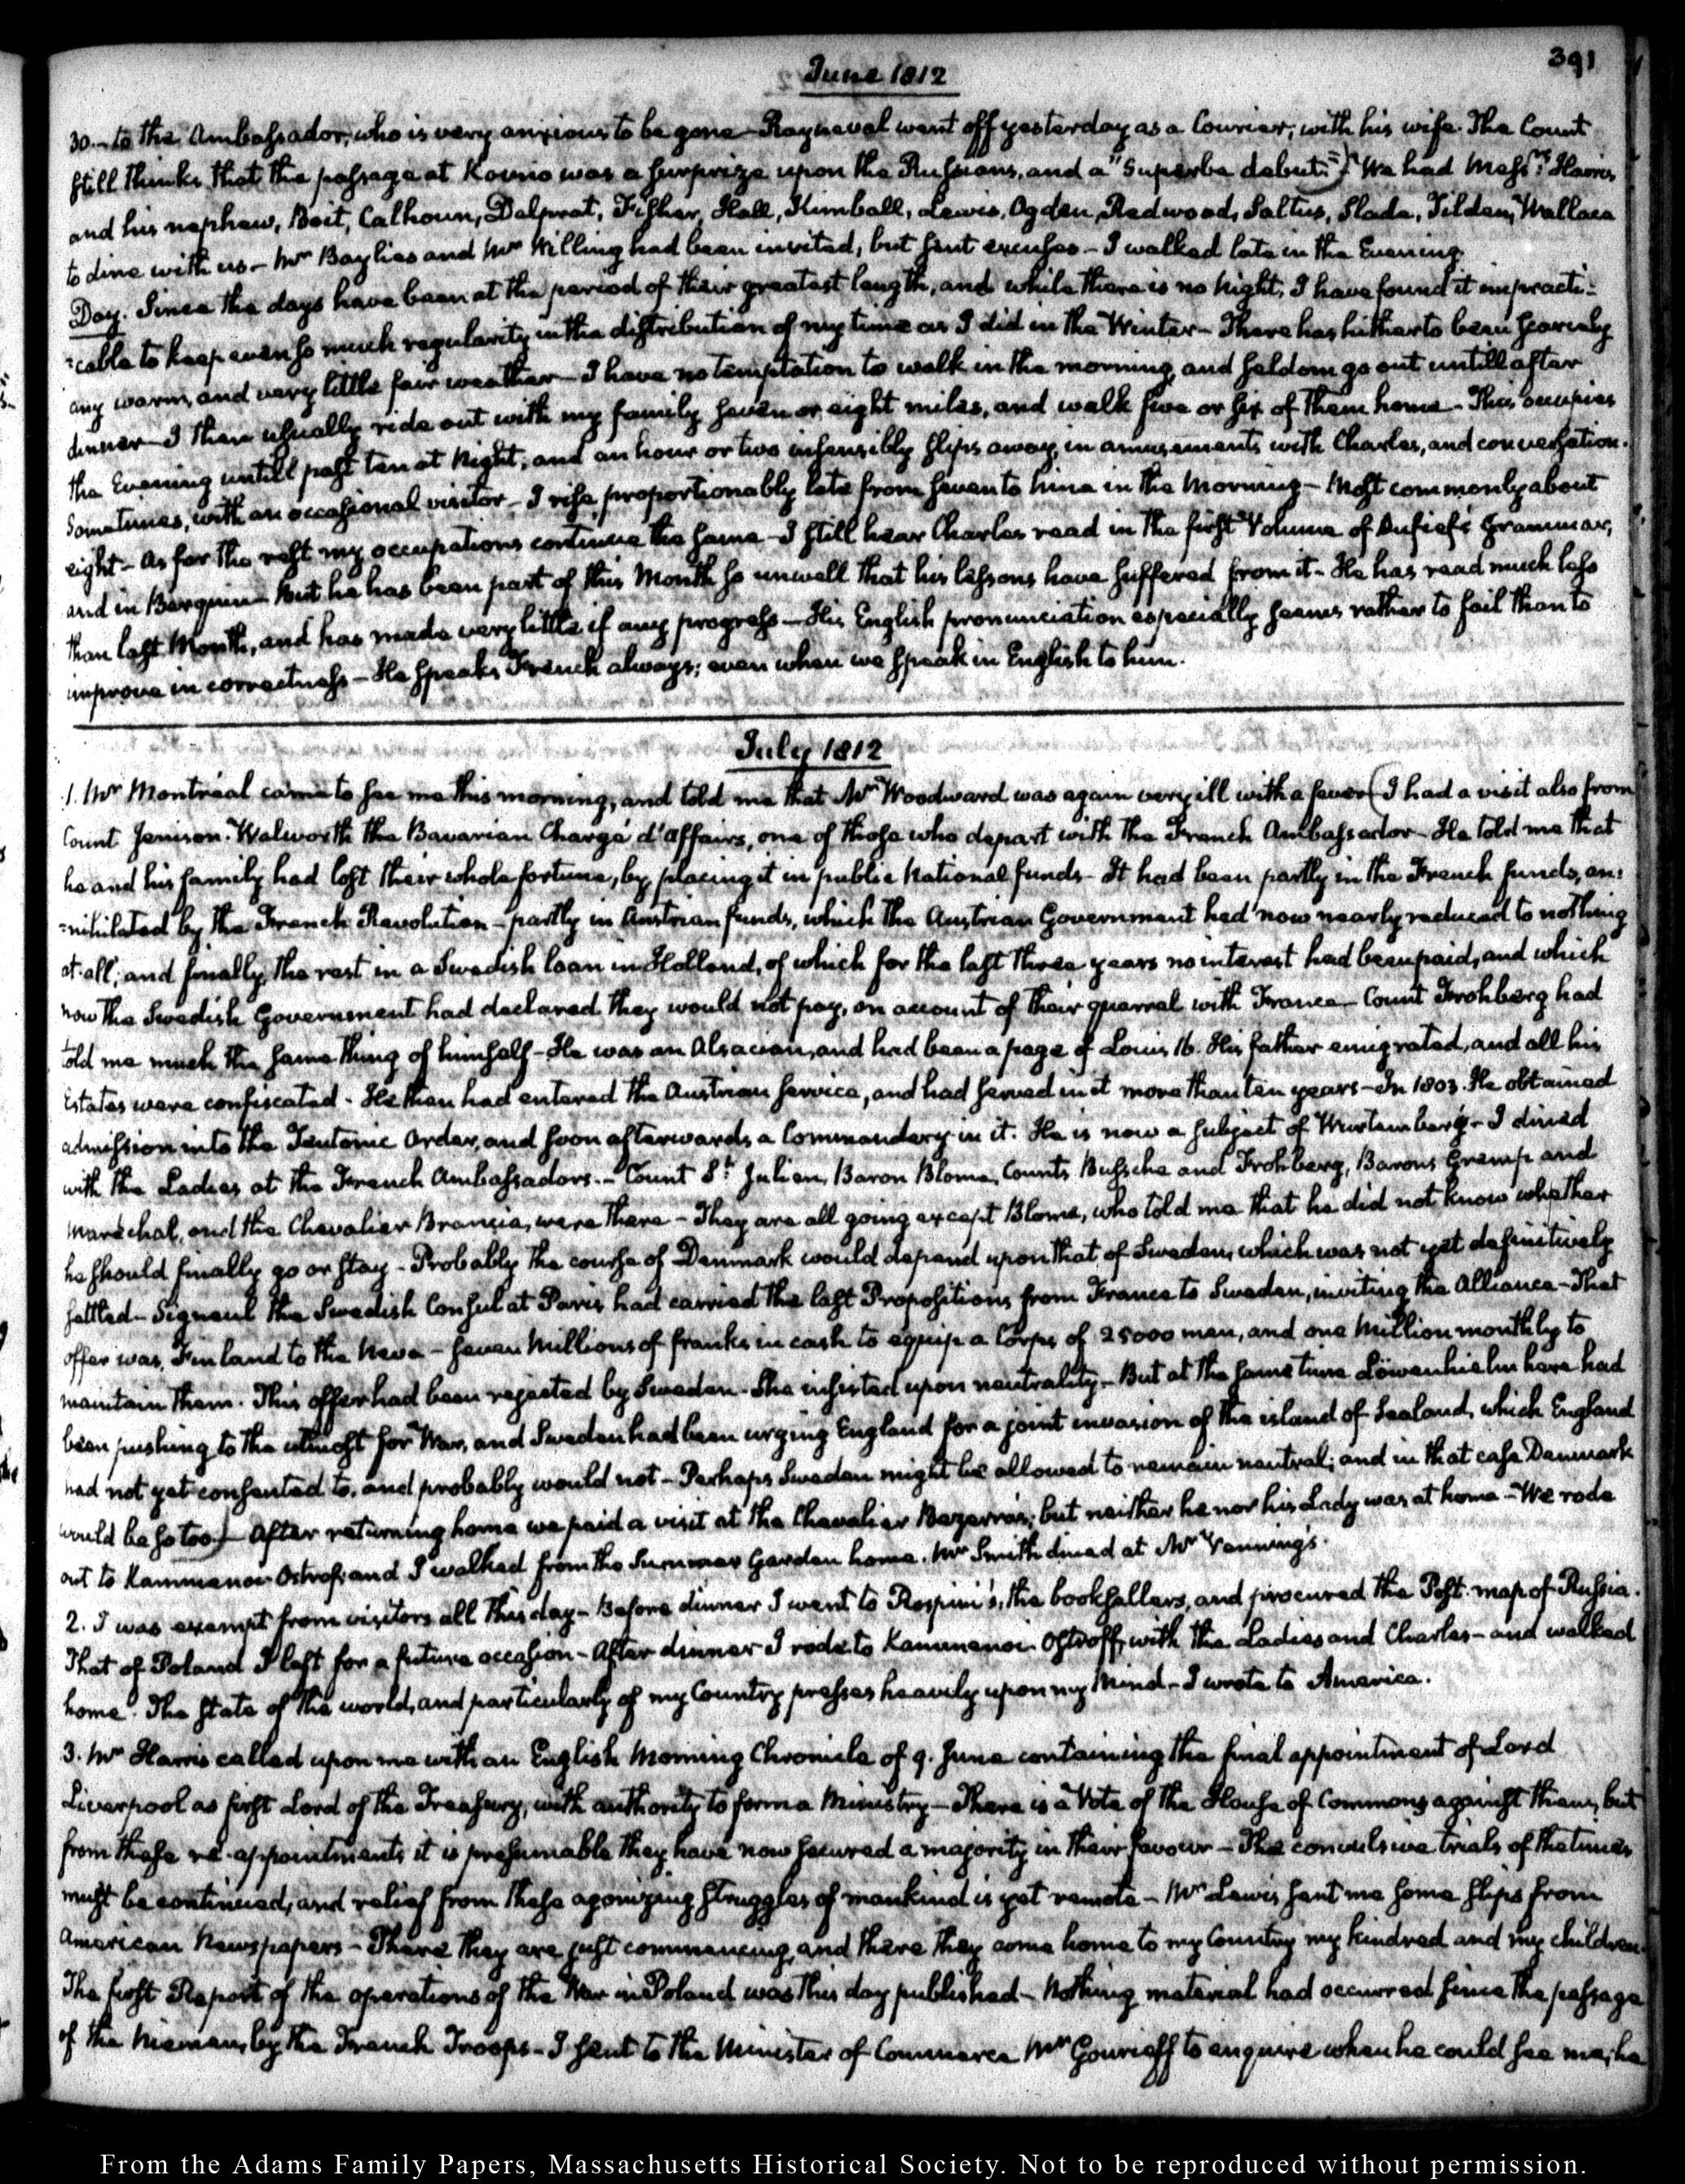 391
June 1812
30.- to the Ambassador, who is very anxious to be gone - Rayneval went off yesterday as a Courier, with his wife. The Count
still thinks that the passage at Kowno was a surprize upon the Russians, and a "Superbe debut.") We had Messrs. Harris
and his nephew, Boit, Calhoun, Dalprat, Fisher, Hall, Kimball, Lewis, Ogden, Redwood, Saltus, Slade, Tilden, Wallace
to dine with us - Mr Baylies and Mr Willing had been invited, but sent excuses - I walked late in the Evening.
Day. Since the days have been at the period of their greatest length, and while there is no night, I have found it impracti-
-cable to keep even so much regularity in the distribution of my time as I did in the Winter - There has hitherto been scarcely
any warm, and very little fair weather - I have no temptation to walk in the morning, and seldom go out untill after
dinner - I then usually ride out with my family seven or eight miles, and walk five or six of them home - This occupies
the Evening untill past ten at Night, and an hour or two insensibly slips away, in amusements with Charles, and conversation.
Sometimes, with an occasional visitor - I rise, proportionably late from seven to nine in the Morning - Most commonly about
eight - As for the rest my occupations continue the same - I still hear Charles read in the first Volume of Dufief's Grammar,
and in Berquin - But he has been part of this Month so unwell that his lessons have suffered from it - He has read much less
than last Month, and has made very little if any progress - His English pronunciation especially seems rather to fail than to
improve in correctness - He speaks French always; even when we speak in English to him.
July 1812
1. Mr Montréal came to see me this morning, and told me that Mr Woodward was again very ill with a fever (I had a visit also from
Count Jenison-Walworth the Bavarian Chargé d'affairs, one of those who depart with the French Ambassador - He told me that
he and his family had lost their whole fortune, by placing it in public National funds - It had been partly in the French funds, an:
-nihilated by the French Revolution - partly in Austrian funds, which the Austrian Government had now nearly reduced to nothing
at all; and finally, the rest in a Swedish loan in Holland, of which for the last three years no interest had been paid, and which
now the Swedish Government had declared they would not pay, on account of their quarrel with France - Count Frohberg had
told me much the same thing of himself - He was an Alsacian, and had been a page of Louis 16. His father emigrated, and all his
Estates were confiscated - He then had entered the Austrian service, and had served in it more than ten years - In 1803. He obtained
admission into the Teutonic Order, and soon afterwards a Commandery in it. He is now a subject of Wurtemberg - I dined
with the Ladies at the French Ambassadors. - Count St. Julien, Baron Blome, Counts Bussche and Frohberg, Barons Gremp and
Maréchal, and the Chevalier Brancia, were there - They are all going except Blome, who told me that he did not know whether
he should finally go or stay - Probably the course of Denmark would depend upon that of Sweden, which was not yet definitively
settled - Signeul the Swedish Consul at Paris had carried the last Propositions from France to Sweden, inviting the Alliance - That
offer was, Finland to the Neva - seven Millions of franks in cash to equip a Corps of 25000 men, and one Million monthly to
maintain them. This offer had been rejected by Sweden. She insisted upon neutrality - But at the same time Löwenhielm here had
been pushing to the utmost for War, and Sweden had been urging England for a joint invasion of the island of Sealand, which England
had not yet consented to, and probably would not - Perhaps Sweden might be allowed to remain neutral; and in that case Denmark
would be so too.) - After returning home we paid a visit at the Chevalier Bezerra's; but neither he nor his Lady was at home - We rode
out to Kammenoi Ostrof, and I walked from the Summer Garden home. Mr Smith dined at Mr Venning's.
2. I was exempt from visitors all this day - Before dinner I went to Rospini's, the booksellers, and procured the Post-map of Russia.
That of Poland I left for a future occasion - After dinner I rode to Kammenoi-Ostroff, with the Ladies and Charles - and walked
home. The state of the world, and particularly of my Country presses heavily upon my Mind - I wrote to America.
3. Mr Harris called upon me with an English Morning Chronicle of 9. June containing the final appointment of Lord
Liverpool as first Lord of the Treasury, with authority to form a Ministry - There is a Vote of the House of Commons against them, but
from these re-appointments it is presumable they have now secured a majority in their favour - The convulsive trials of the times
must be continued, and relief from these agonizing struggles of mankind is yet remote - Mr Lewis sent me some slips from
American Newspapers - There they are just commencing, and there they come home to my Country my kindred and my children.
The first Report of the operations of the War in Poland was this day published - Nothing material had occurred since the passage
of the Niemen, by the French Troops - I sent to the Minister of Commerce Mr Gourieff to enquire when he could see me; he
From the Adams Family Papers, Massachusetts Historical Society. Not to be reproduced without permission.